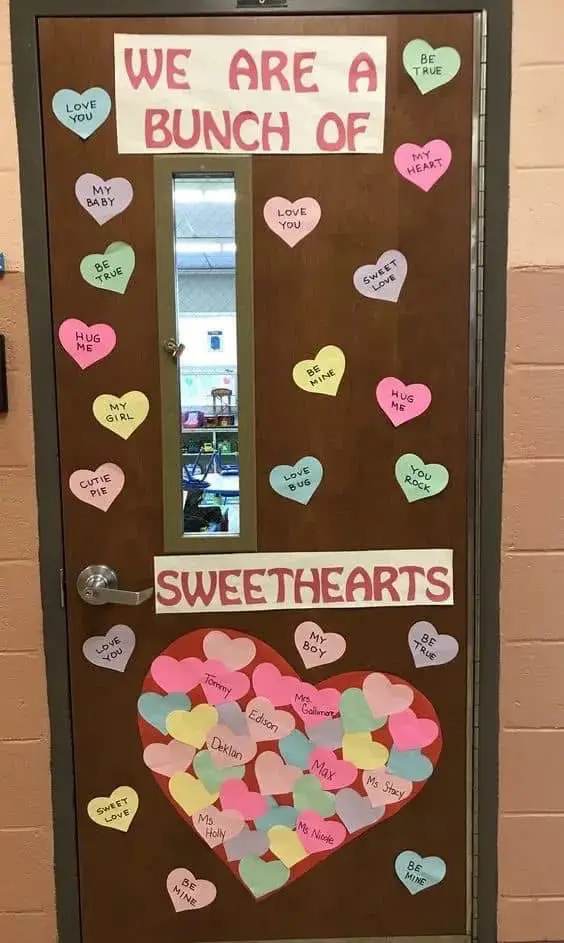 WE ARE A
BUNCH OF
BE
TRUE
LOVE
YOU
MY
HEART
MY
BABY
LOVE
YOU
BE
TRUE
SWEET
LOVE
HUG
ME
BE
MINE
HUG
ME
MY
GIRL
CUTIE
PIE
LOVE
BUG
YOU
ROCK
SWEETHEARTS
LOVE
YOU
MY
BOY
BE
TRUE
Tommy
Mrs.
Edison
Deklan
Max
Ms Stacy
Ms
Holly
Ms. Nicole
SWEET
LOVE
BE
MINE
BE
MINE